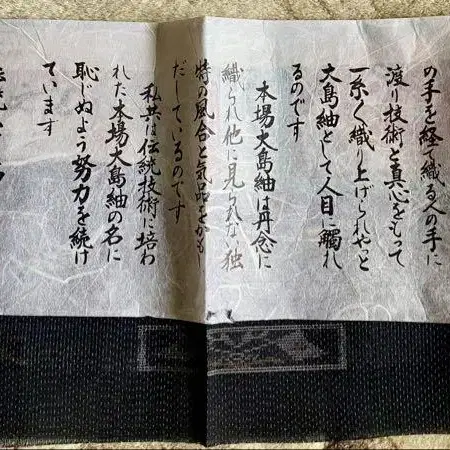 の手を経て織る人の手に
渡り技術と真心をもって
一糸〱織り上げられやっと
大島紬として人目に觸れ
るのです
本場大島紬は丹念に
織られ他に見られない独
特の風合と気品をかもし
だしているのです
私共は伝統技術に培わ
れた本場大島紬の名に
恥じぬよう努力を続け
ています